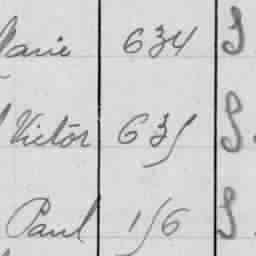 Marie 634 S
Victor 635 S.
Paul 156 S.